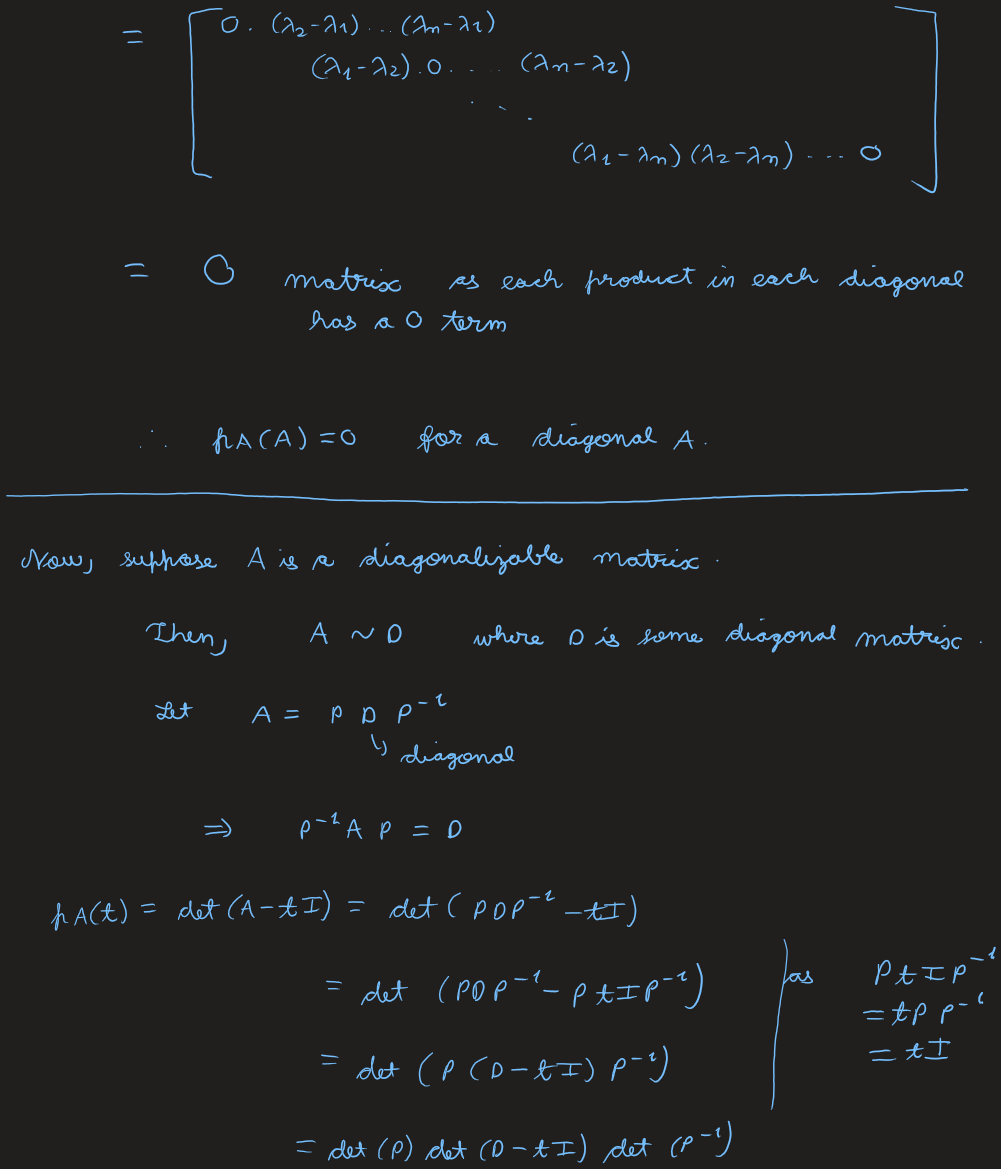 = [ 0. (λ₂-λ₁) ... (λn-λ₁)
(λ₁-λ₂).0. ... (λn-λ₂)
⋱
(λ₁-λn)(λ₂-λn) .... 0 ]
= 0 matrix as each product in each diagonal
has a 0 term
∴ pA(A) = 0 for a diagonal A.
Now, suppose A is a diagonalizable matrix.
Then, A ~ D where D is some diagonal matrix.
Let A = P D P⁻¹
↳ diagonal
⇒ P⁻¹ A P = D
pA(t) = det (A-tI) = det ( PDP⁻¹ - tI)
= det (PDP⁻¹ - P tI P⁻¹) | as P t I P⁻¹
= tP P⁻¹
= det ( P (D-tI) P⁻¹)
= tI
= det (P) det (D-tI) det (P⁻¹)